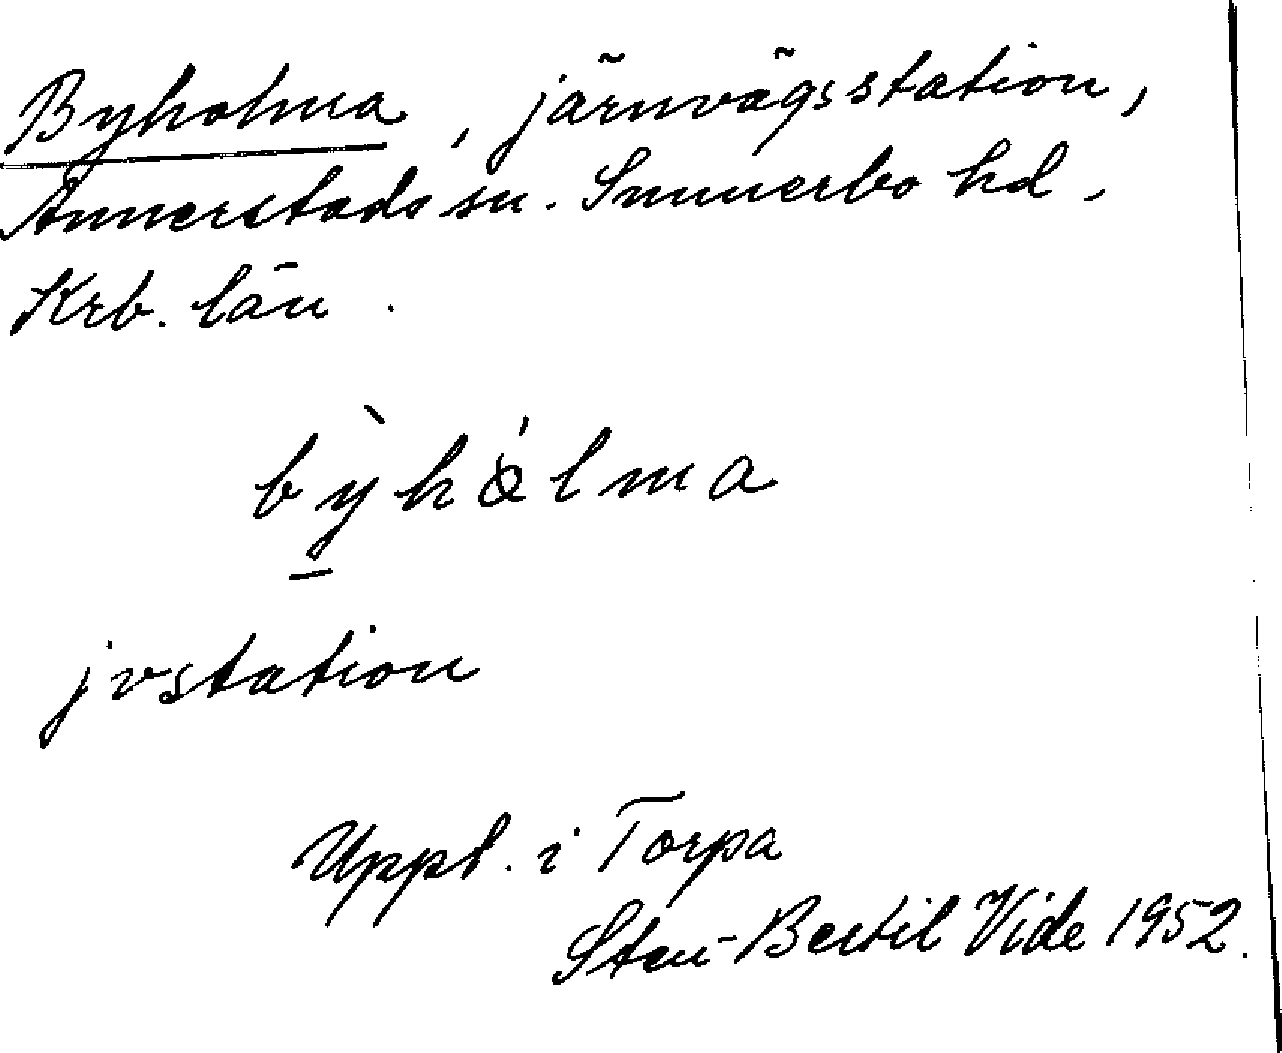 Byholma, järnvägsstation,
Annerstads sn. Sunnerbo hd,
Krb. län.
bỳhålma
jvstation
Uppt. i Torpa
Sten-Bertil Vide 1952.